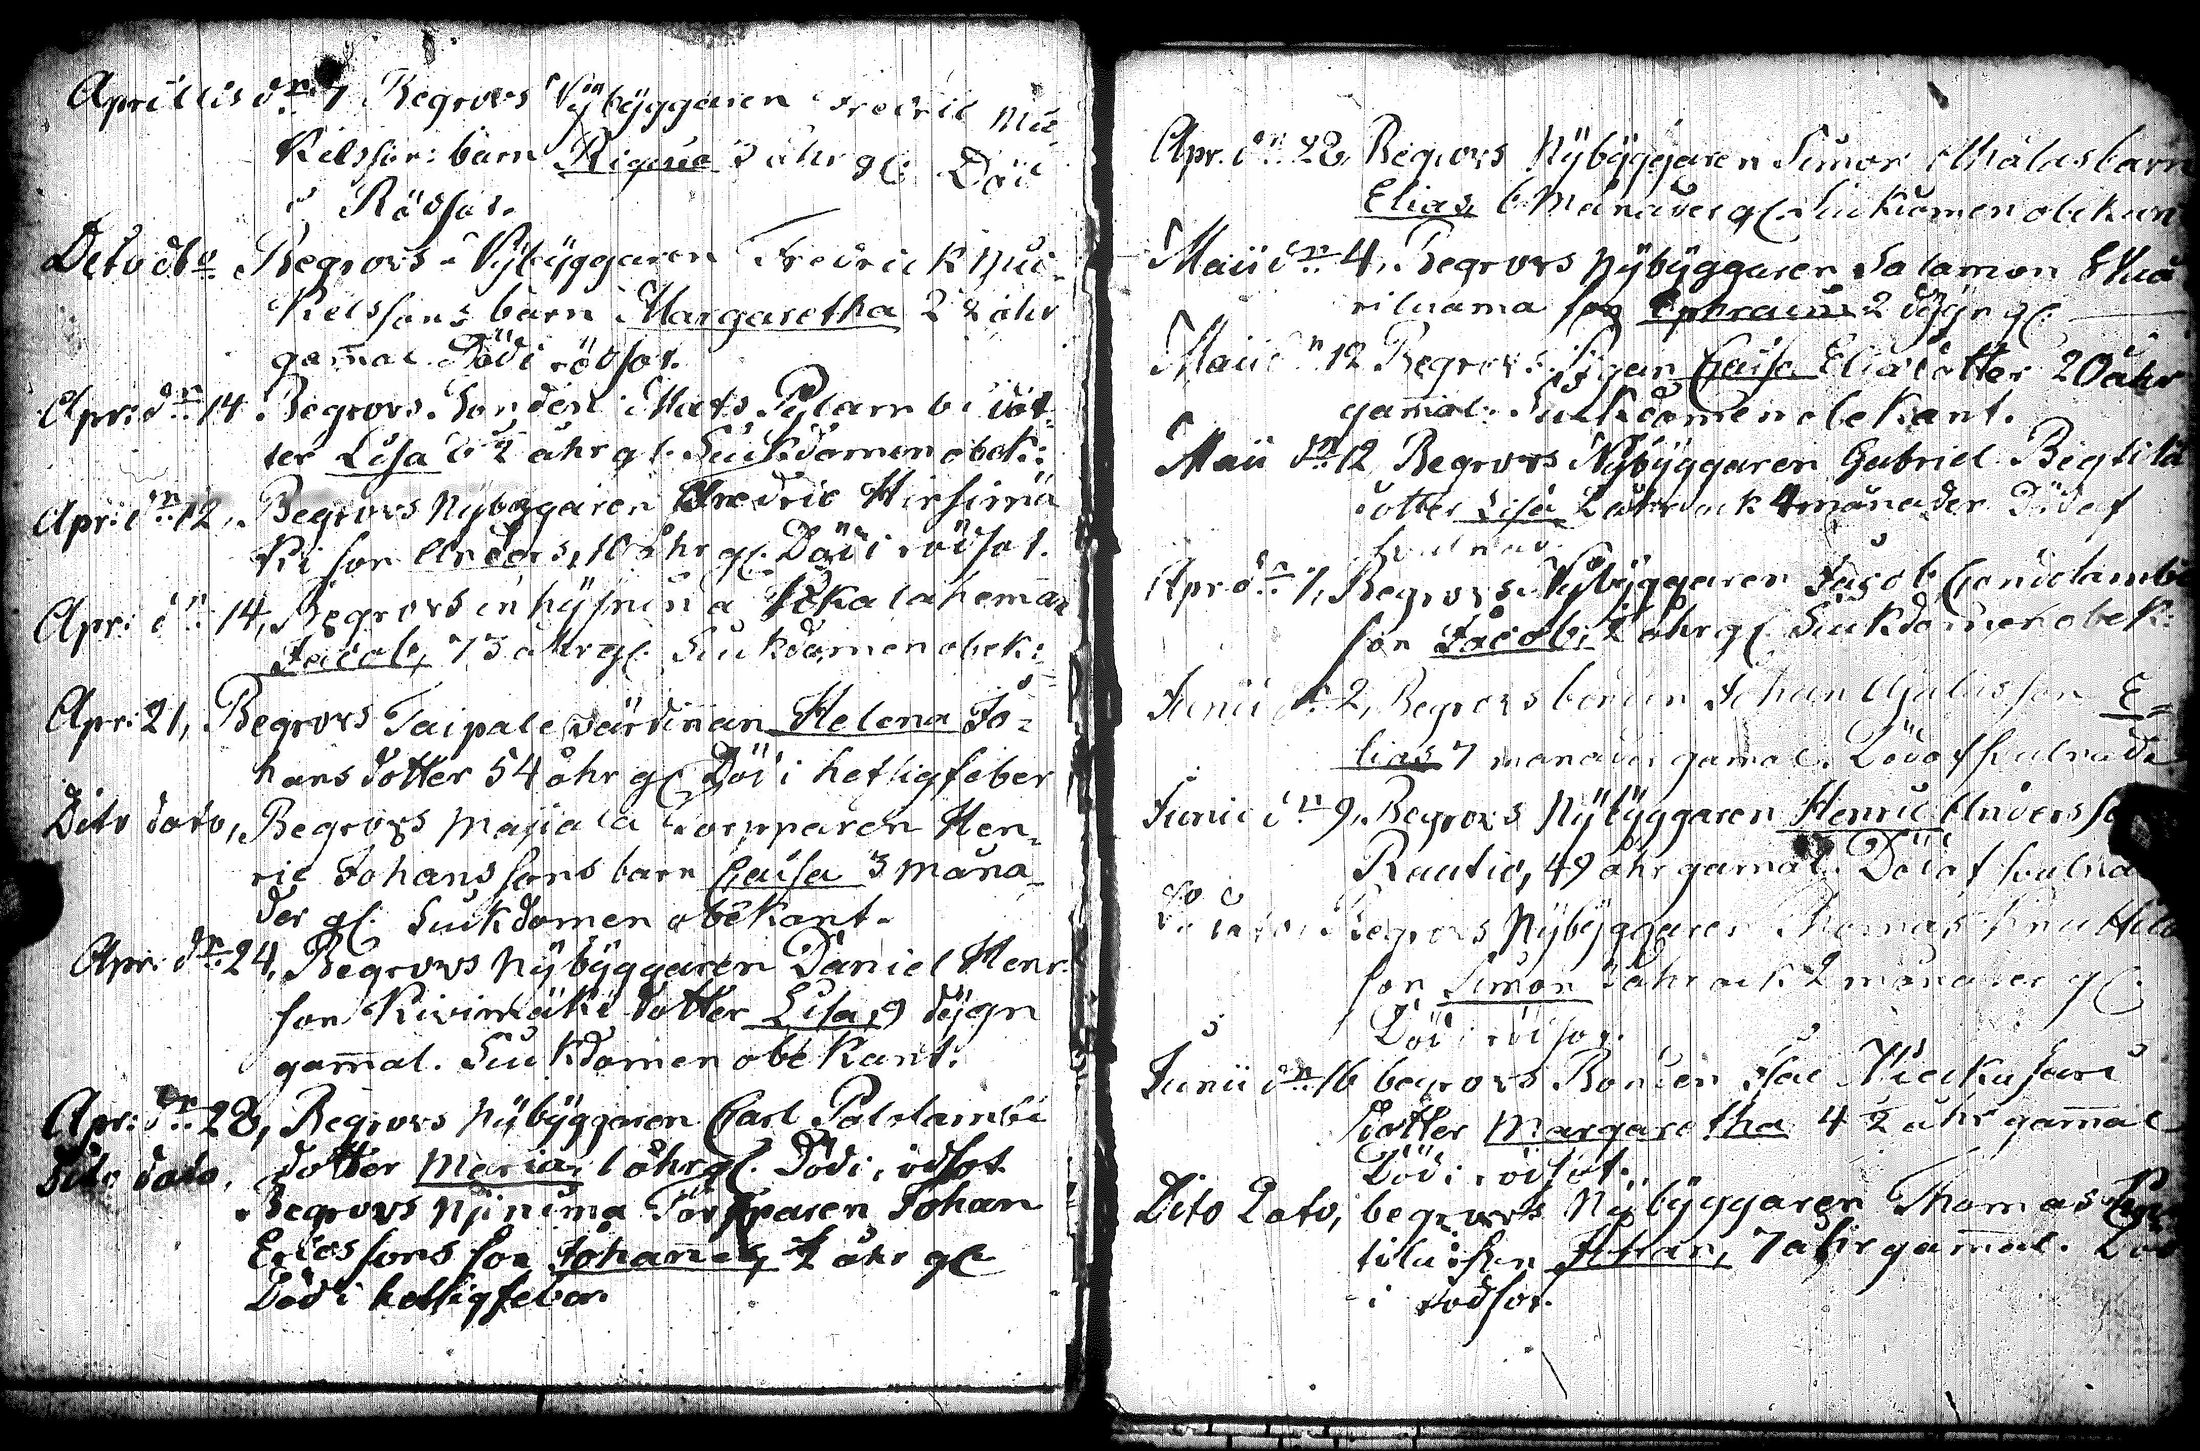 Aprillis dn 7 Begrovs Nÿbÿggaren Fredric Mic-
kelsson: barn Rigina 3 åhr gl: Död
i Rödsot.
Dito dto Begrovs Nÿbÿggaren Fredrick Mic-
kelssons barn Margaretha 2 ½ åhr
gam̄al Död i rödsot.
Apr: dn 14 Begrovs Bonden Mats Pylam bi dot-
ter Lisa 6 ½ åhr gl. Siuckdomen obek:
Apr: dn 12, Begrovs Nybÿggaren Fredric Hirsimä
ki son Anders, 10 åhr gl. Död i rödsot.
Apr: dn 14, Begrovs
Jacob, 73 åhr gl. Siukdomen obek:
Apr: 21, Begrovs Taipale värdinnan Helena Jo-
hans dotter 54 åhr gl Död i hetligfeber
Dito dato, Begrovs Torpparen Hen-
ric Johanssons barn Caisa 3 måna-
der gl. Siukdomen obekant.
Apr: dn 24, Begrovs Nÿbÿggaren Daniel Henr.
son Kivimäki dotter Lisa, 9 dÿgn
gam̄al. Siukdomen obekant.
Apr: dn 28, Begrovs Nÿbÿggaren Carl Palolambi
dotter Maria, 1 åhr gl. Död i rödsot
Dito dato, Begrovs Torpparen Johan
Ericssons son Johannes, ½ åhr gl
Död i hetligfeber
Apr. dn 28, Begrovs Nÿbÿggaren Simon barn
Elias, 6 Månader gl. Siukdomen obekan
Maii dn 4, Begrovs Nÿbÿggaren Salamon
son Ephraim 2 dÿgn gl.
Maii dn 12 Begrovs Pigan Caisa Eliædotter 20 åhr
gam̄al. Siukdomen obekant.
Maii dn 12, Begrovs Nÿbÿggaren Gabriel
dotter Lisa 2 åhr ock 4 månader Död af
Apr dn 7, Begrovs Nÿbÿggaren Jacob
son Jacob, 2 åhr gl. Siukdomen obek.
Junii dn 2, Begrovs bonden Johan son E-
lias 7 månader gamal. Död af
Junii dn 9, Begrovs Nÿbÿggaren Henric Anders
Rautio, 49 åhr gamal. Död af
dato, Begrovs Nÿbÿggaren Thomas
son Simon åhr ock 2 månader gl.
Död i rödsot.
Junii dn 16 begrovs Bonden
dotter Margaretha 4 ½ åhr gam̄al
Död i rödsot.
Dito Dato, begrovs Nÿbÿggaren Thomas
son Johan, 7 åhr gam̄al. Död
i rödsot.